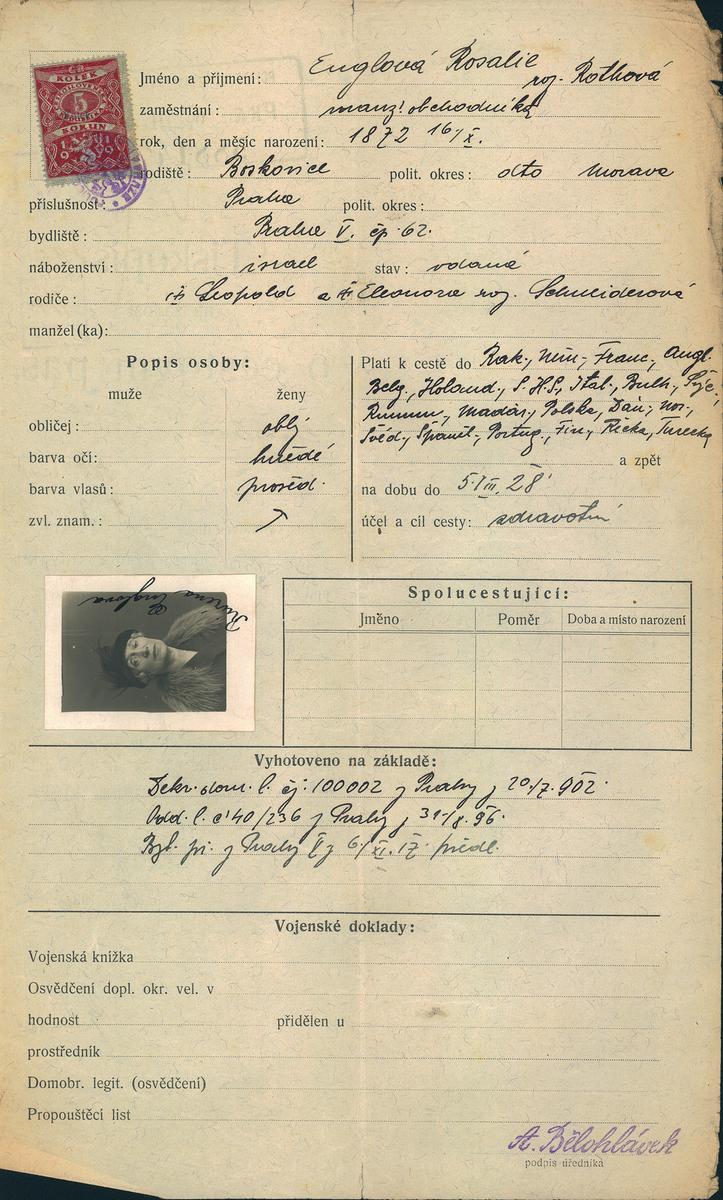 KOLEK
5
KORUN
Jméno a příjmení: Englová Rosalie roz. Rothová
zaměstnání: manž. obchodníka
rok, den a měsíc narození: 1872 16/X.
rodiště: Boskovice polit. okres: dto Morava
příslušnost: Praha polit. okres:
bydliště: Praha V. čp. 62.
náboženství: israel stav: vdaná
rodiče: Leopold a Eleonora roz. Schneiderová
manžel (ka):
Popis osoby:
muže ženy
obličej: oblý
barva očí: hnědé
barva vlasů: prošed.
zvl. znam.:
Platí k cestě do Rak., Něm., Franc., Angl.
Belg., Holand., S.H.S., Ital., Bulh., Švýc.,
Rumun., Maďar., Polska, Dán., Nor.,
Švéd., Španěl., Portug., Fin., Řecka, Turecka
a zpět
na dobu do 5/III. 28
účel a cíl cesty: zdravotní
Růžena Englova
Spolucestující:
Jméno Poměr Doba a místo narození
Vyhotoveno na základě:
Dekr. dom. l. čj: 100002 z Prahy z 20/7. 902.
Odd. l. č. 40/236 z Prahy z 31/8. 96.
Byt. př. z Prahy V z 6/XI. předl.
Vojenské doklady:
Vojenská knížka
Osvědčení dopl. okr. vel. v
hodnost přidělen u
prostředník
Domobr. legit. (osvědčení)
Propouštěcí list
A. Bělohlávek
podpis úředníka